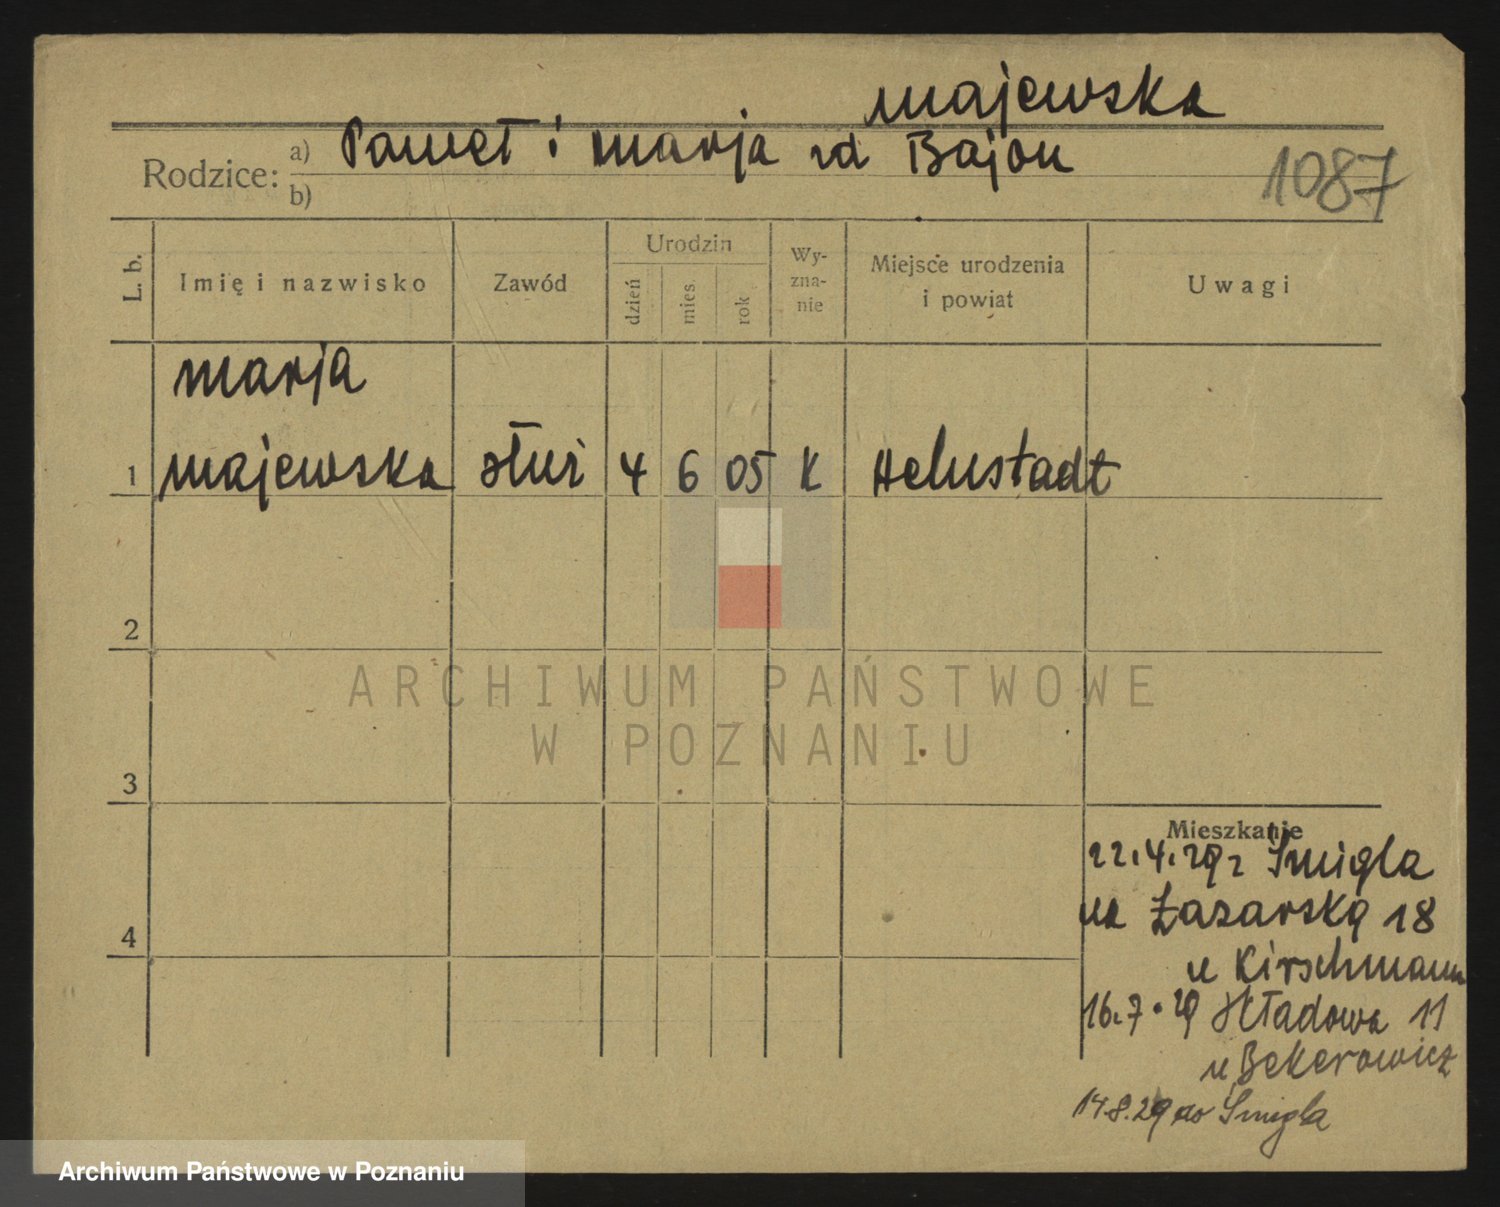 Majewska
Rodzice: a) Paweł i Marja zd Bajon
b)
1087
L. b.
Imię i nazwisko
Zawód
Urodzin
dzień
mies.
rok
Wy-
zna-
nie
Miejsce urodzenia
i powiat
Uwagi
Marja
1 Majewska służ 4 6 05 K Helmstadt
2
3
4
Mieszkanie
22.4.29 z Śmigla
na Łazarską 18
u Kirschmann
16.7.29 Składowa 11
u Bekerowicz
14.8.29 do Śmigla
ARCHIWUM PAŃSTWOWE
W POZNANIU
Archiwum Państwowe w Poznaniu